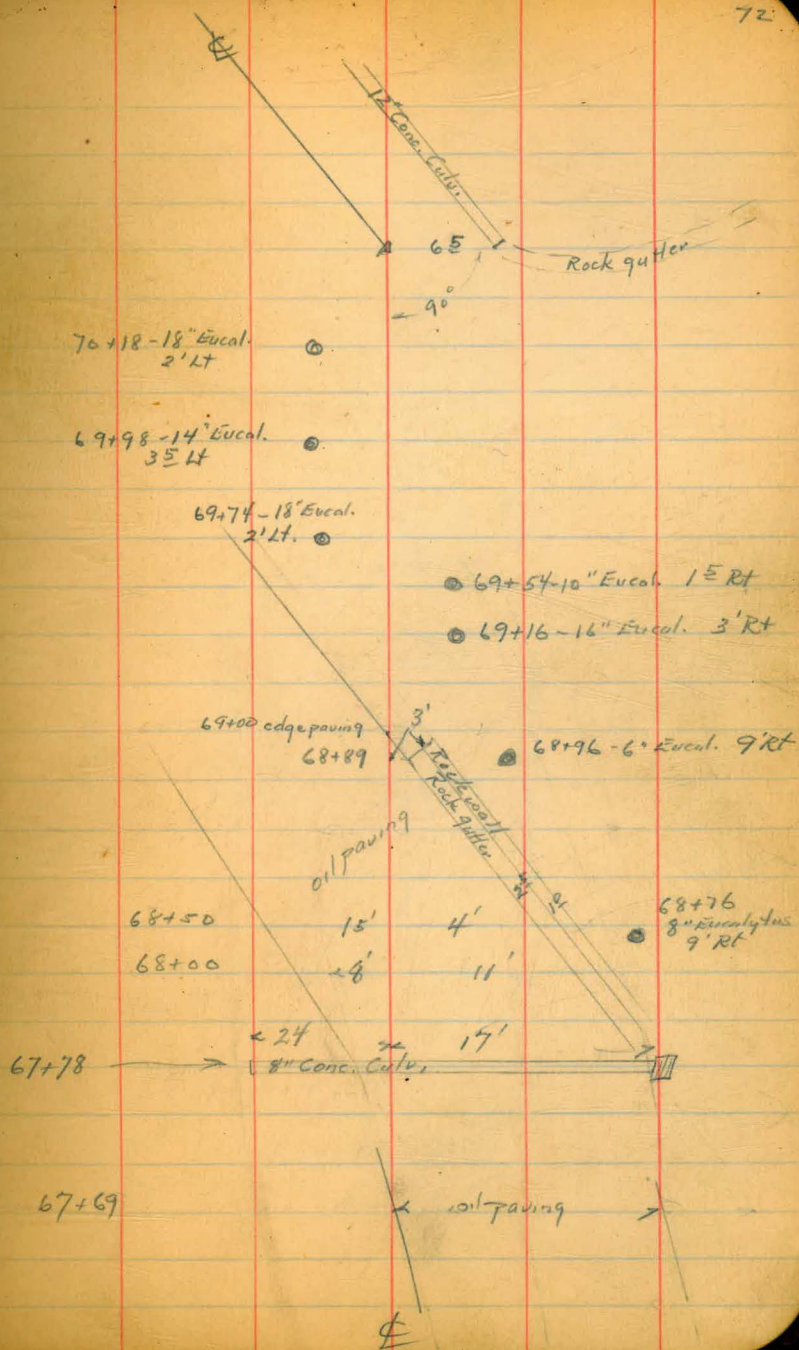 72
℄
12" Conc. Culv.
6 5
Rock gutter
90°
70+18-18" Eucal.
2' Lt
69+98-14" Eucal.
3 5 Lt
69+74-18" Eucal.
2' Lt.
69+54-10" Eucal. 1 5 Rt
69+16-16" Eucal. 3' Rt
69+00 edge paving
3'
68+89
68+96-6" Eucal. 9' Rt
Rock wall
Rock gutter
oil paving
68+76
8" Eucalytus
9' Rt
68+50
15'
4'
68+00
8'
11'
24
17'
67+78
8" Conc. Culv.
67+69
oil paving
℄